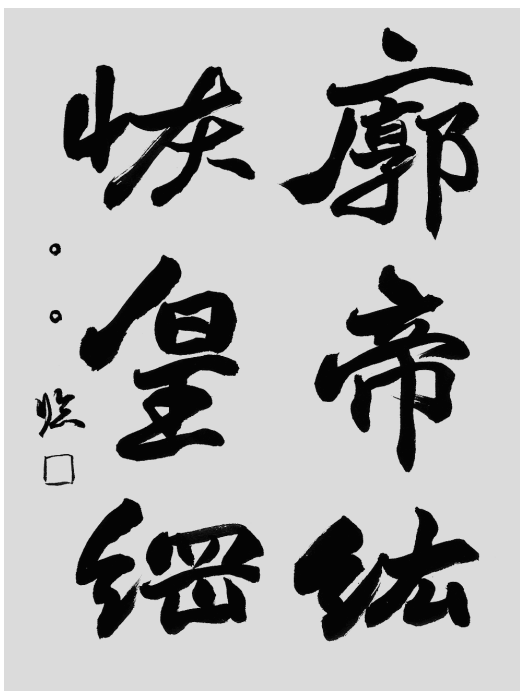 廓帝紘
恢皇綱
○○臨